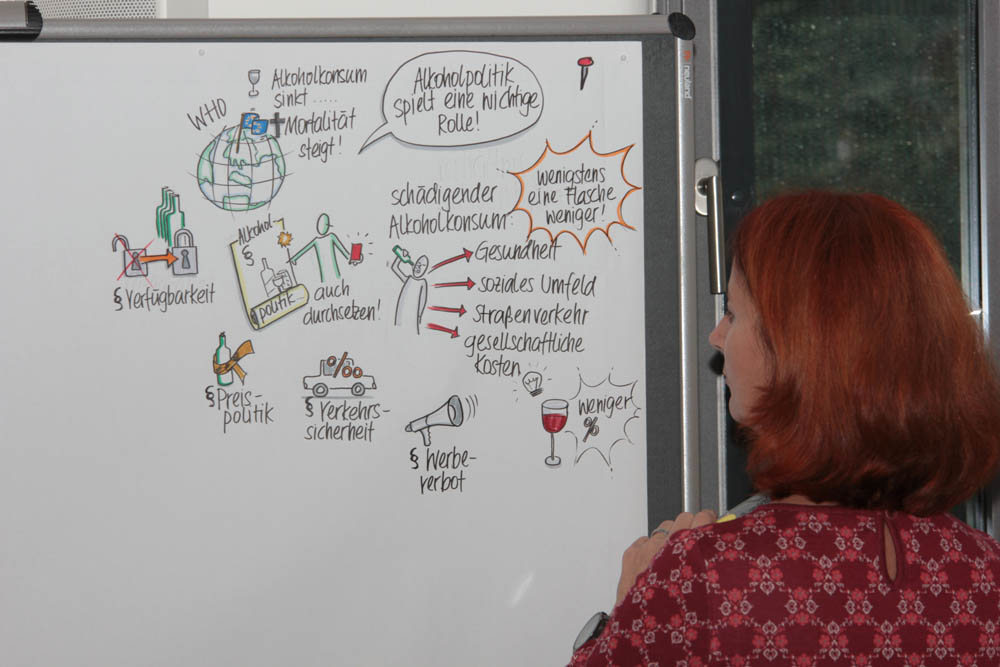 Alkoholkonsum
sinkt .....
Mortalität
steigt!
WHO
Alkoholpolitik
spielt eine wichtige
Rolle!
wenigstens
eine Flasche
weniger!
schädigender
Alkoholkonsum:
Gesundheit
soziales Umfeld
Straßenverkehr
gesellschaftliche
Kosten
§ Verfügbarkeit
Alkohol
§
politik...
auch
durchsetzen!
§ Preis-
politik
%
§ Verkehrs-
sicherheit
§ Werbe-
verbot
weniger
%